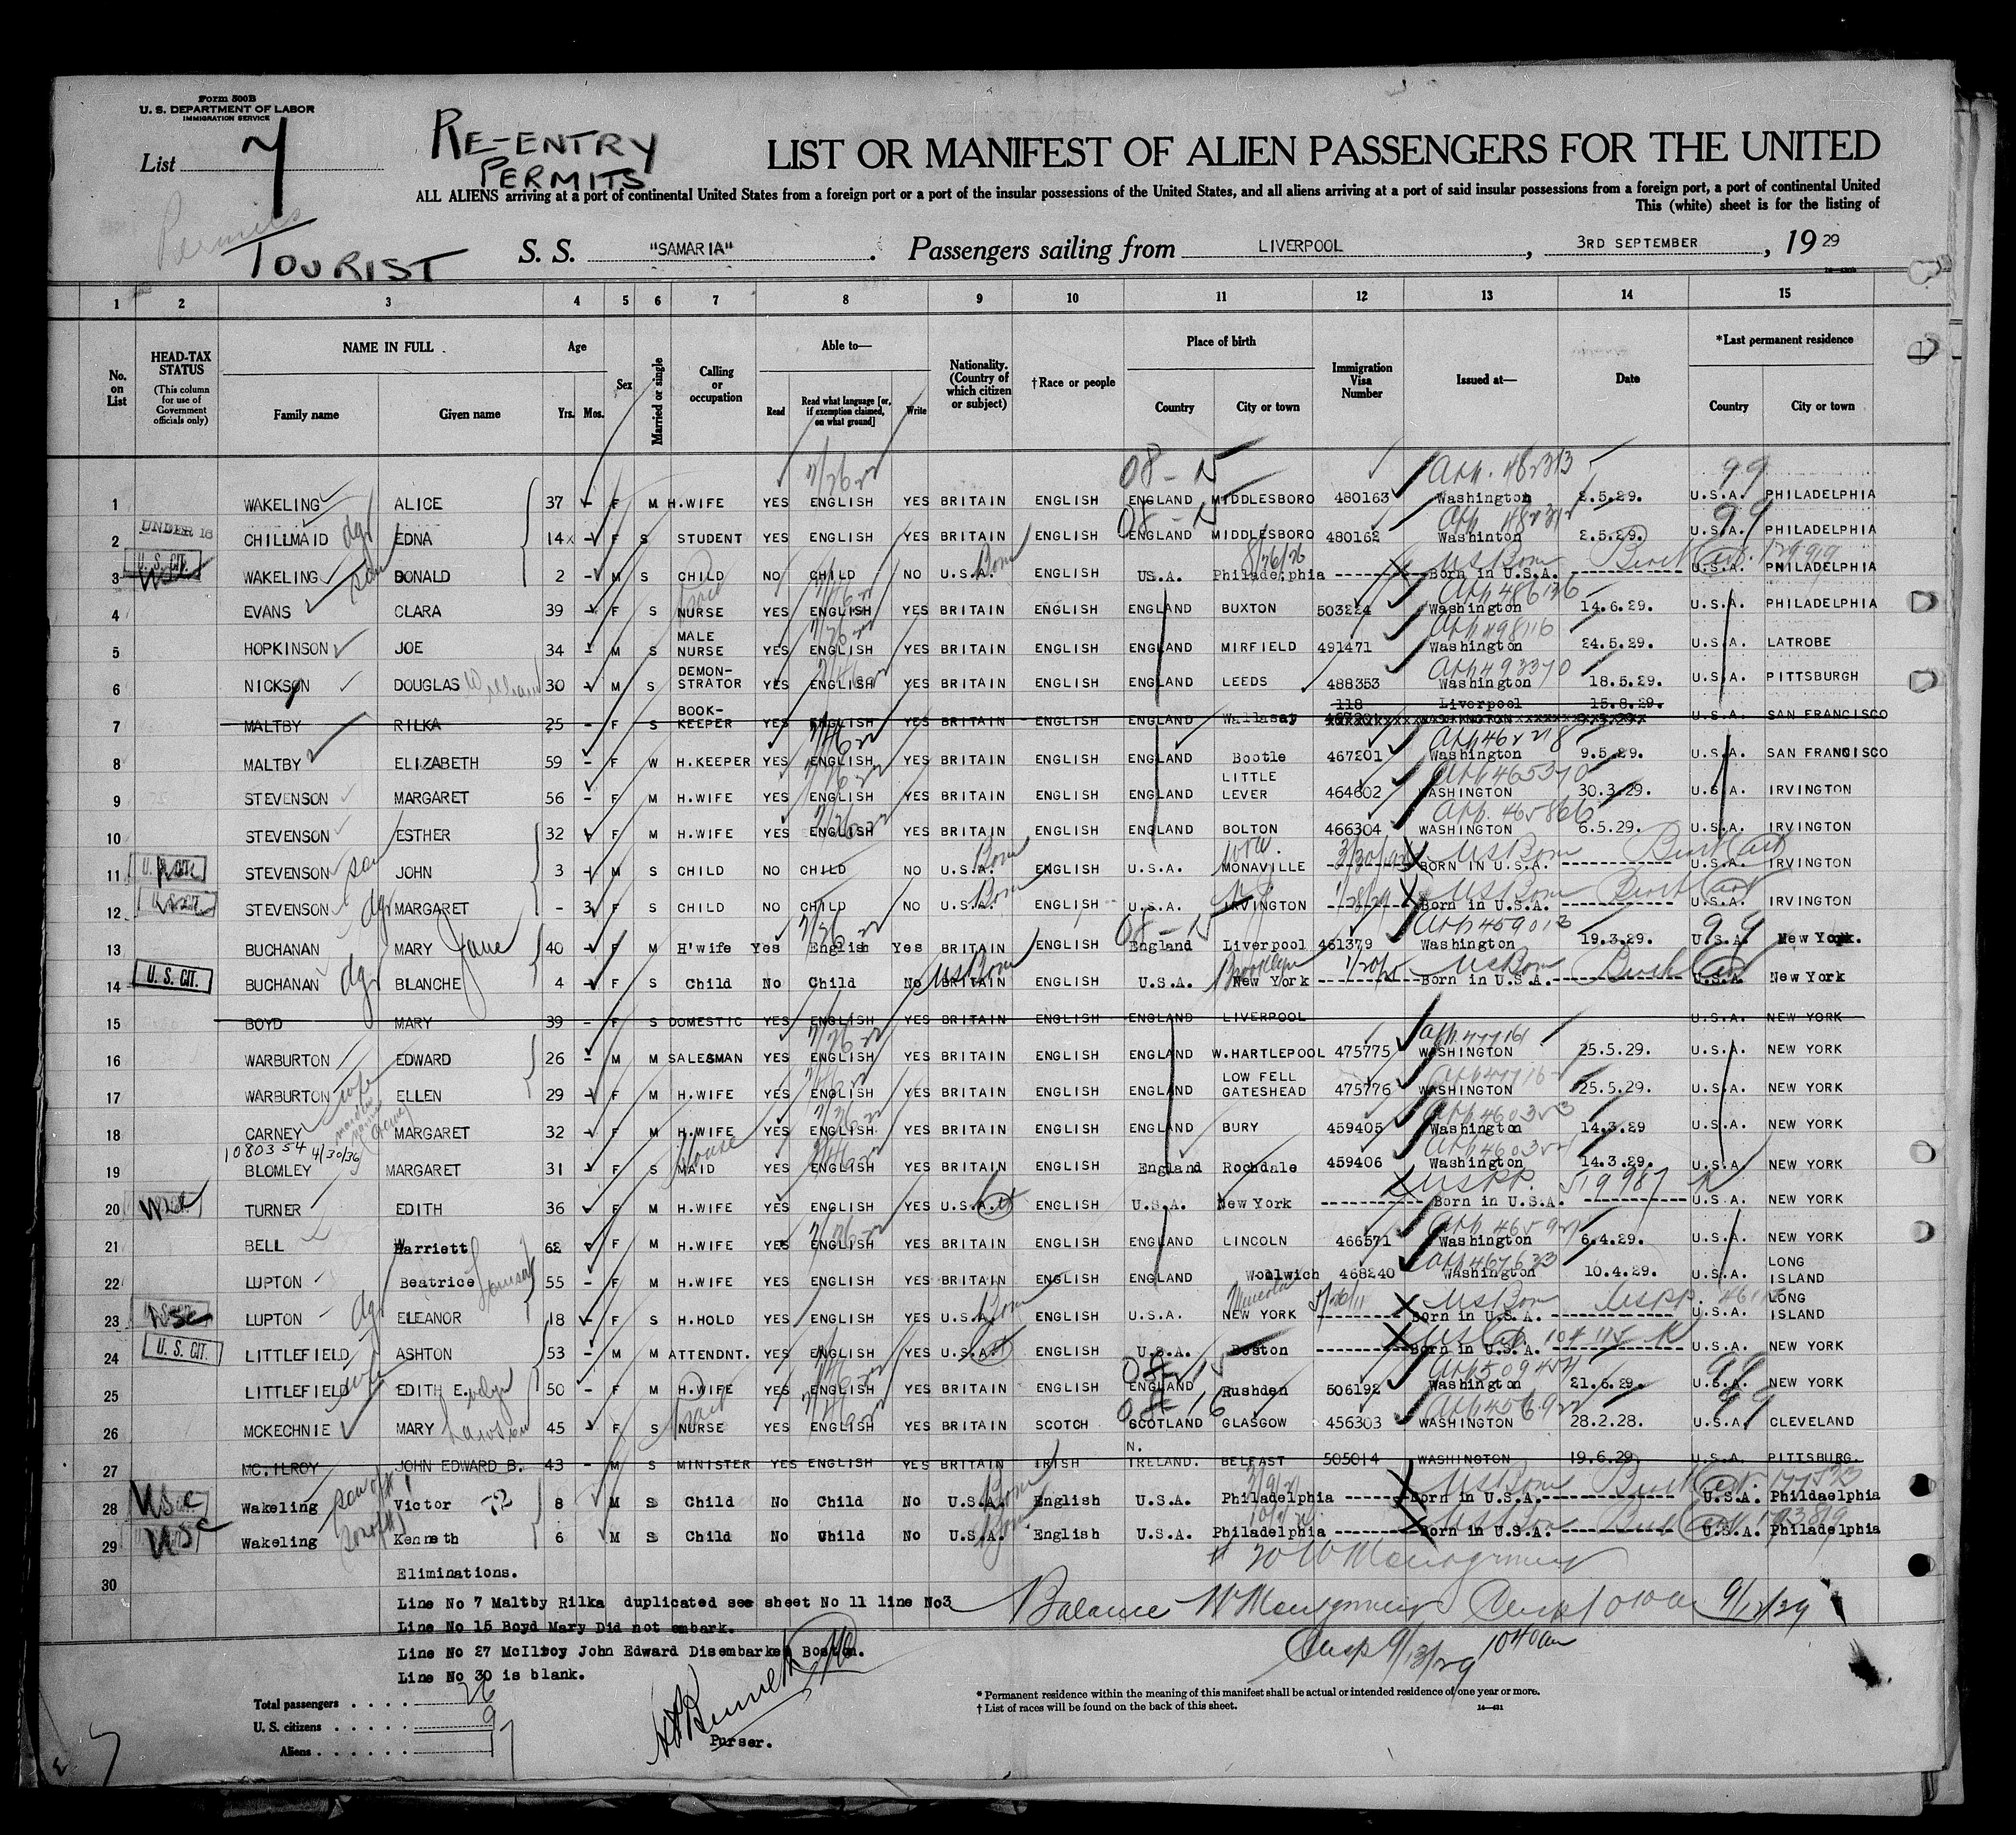 Form 500B
U. S. DEPARTMENT OF LABOR
IMMIGRATION SERVICE
List 7
Permits
RE-ENTRY
PERMITS
TOURIST
LIST OR MANIFEST OF ALIEN PASSENGERS FOR THE UNITED
ALL ALIENS arriving at a port of continental United States from a foreign port or a port of the insular possessions of the United States, and all aliens arriving at a port of said insular possessions from a foreign port, a port of continental United
This (white) sheet is for the listing of
S. S. "SAMARIA" Passengers sailing from LIVERPOOL, 3RD SEPTEMBER, 1929
1 2 3 4 5 6 7 8 9 10 11 12 13 14 15
No. on List
HEAD-TAX STATUS (This column for use of Government officials only)
NAME IN FULL
Family name Given name
Age Yrs. Mos.
Sex
Married or single
Calling or occupation
Able to—
Read Read what language [or, if exemption claimed, on what ground] Write
Nationality. (Country of which citizen or subject)
†Race or people
Place of birth
Country City or town
Immigration Visa Number
Issued at—
Date
*Last permanent residence
Country City or town
1 WAKELING ALICE 37 - F M H.WIFE YES ENGLISH YES BRITAIN ENGLISH ENGLAND MIDDLESBORO 480163 Washington 2.5.29. U.S.A. PHILADELPHIA
2 UNDER 16 CHILLMAID dgr EDNA 14 - F S STUDENT YES ENGLISH YES BRITAIN ENGLISH ENGLAND MIDDLESBORO 480162 Washinton 2.5.29. U.S.A. PHILADELPHIA
3 U.S. CIT. WAKELING son DONALD 2 - M S CHILD NO CHILD NO U.S.A. Born ENGLISH U.S.A. Philadelphia 8/26/26 Born in U.S.A. US Born U.S.A. PHILADELPHIA
4 EVANS CLARA 39 - F S NURSE YES ENGLISH YES BRITAIN ENGLISH ENGLAND BUXTON 503224 Washington 14.6.29. U.S.A. PHILADELPHIA
5 HOPKINSON JOE 34 - M S MALE NURSE YES ENGLISH YES BRITAIN ENGLISH ENGLAND MIRFIELD 491471 Washington 24.5.29. U.S.A. LATROBE
6 NICKSON DOUGLAS William 30 - M S DEMON-STRATOR YES ENGLISH YES BRITAIN ENGLISH ENGLAND LEEDS 488353 Washington 18.5.29. U.S.A. PITTSBURGH
7 MALTBY RILKA 25 - F S BOOK-KEEPER YES ENGLISH YES BRITAIN ENGLISH ENGLAND Wallasey 118 Liverpool 15.8.29. U.S.A. SAN FRANCISCO
8 MALTBY ELIZABETH 59 - F W H.KEEPER YES ENGLISH YES BRITAIN ENGLISH ENGLAND Bootle 467201 Washington 9.5.29. U.S.A. SAN FRANCISCO
9 STEVENSON MARGARET 56 - F M H.WIFE YES ENGLISH YES BRITAIN ENGLISH ENGLAND LITTLE LEVER 464602 WASHINGTON 30.3.29. U.S.A. IRVINGTON
10 STEVENSON ESTHER 32 F M H.WIFE YES ENGLISH YES BRITAIN ENGLISH ENGLAND BOLTON 466304 WASHINGTON 6.5.29. U.S.A. IRVINGTON
11 STEVENSON son JOHN 3 - M S CHILD NO CHILD NO U.S.A. Born ENGLISH U.S.A. MONAVILLE BORN IN U.S.A. US Born U.S.A. IRVINGTON
12 STEVENSON dgr MARGARET - 3 F S CHILD NO CHILD NO U.S.A. Born ENGLISH U.S.A. IRVINGTON Born in U.S.A. US Born U.S.A. IRVINGTON
13 BUCHANAN MARY Jane 40 - F M H'wife Yes English Yes BRITAIN ENGLISH England Liverpool 461379 Washington 19.3.29. U.S.A. New York.
14 U.S. CIT. BUCHANAN dgr BLANCHE 4 - F S Child No Child No BRITAIN US Born ENGLISH U.S.A. New York Brooklyn Born in U.S.A. US Born U.S.A. New York
15 BOYD MARY 39 - F S DOMESTIC YES ENGLISH YES BRITAIN ENGLISH ENGLAND LIVERPOOL U.S.A. NEW YORK
16 WARBURTON EDWARD 26 - M M SALESMAN YES ENGLISH YES BRITAIN ENGLISH ENGLAND W.HARTLEPOOL 475775 WASHINGTON 25.5.29. U.S.A. NEW YORK
17 WARBURTON wife ELLEN 29 - F M H.WIFE YES ENGLISH YES BRITAIN ENGLISH ENGLAND LOW FELL GATESHEAD 475776 WASHINGTON 25.5.29. U.S.A. NEW YORK
18 CARNEY MARGARET 32 - F M H.WIFE YES ENGLISH YES BRITAIN ENGLISH ENGLAND BURY 459405 Washington 14.3.29 U.S.A. NEW YORK
1080354 4/30/36
19 BLOMLEY MARGARET 31 - F S House MAID YES ENGLISH YES BRITAIN ENGLISH England Rochdale 459406 Washington 14.3.29. U.S.A. NEW YORK
20 TURNER EDITH 36 F M H.WIFE YES ENGLISH YES U.S.A. ENGLISH U.S.A. New York Born in U.S.A. USPP. 519987 U.S.A. NEW YORK
21 BELL Harriett 62 F M H.WIFE YES ENGLISH YES BRITAIN ENGLISH ENGLAND LINCOLN 466571 Washington 6.4.29. U.S.A. NEW YORK
22 LUPTON Beatrice Louisa 55 - F M H.WIFE YES ENGLISH YES BRITAIN ENGLISH ENGLAND Woolwich 468240 Washington 10.4.29. U.S.A. LONG ISLAND
23 USC LUPTON dgr ELEANOR 18 - F S H.HOLD YES ENGLISH YES U.S.A. Born ENGLISH U.S.A. NEW YORK Mineola Born in U.S.A. US Born U.S.A. LONG ISLAND
24 U.S. CIT. LITTLEFIELD ASHTON 53 - M M ATTENDNT. YES ENGLISH YES U.S.A. ENGLISH U.S.A. Boston Born in U.S.A. U.S.A. NEW YORK
25 LITTLEFIELD wife EDITH E.velyn 50 - F M H.WIFE YES ENGLISH YES BRITAIN ENGLISH ENGLAND Rushden 506192 Washington 21.6.29. U.S.A. NEW YORK
26 MCKECHNIE MARY Lawson 45 - F S NURSE YES ENGLISH YES BRITAIN SCOTCH SCOTLAND GLASGOW 456303 WASHINGTON 28.2.28. U.S.A. CLEVELAND
27 MC.ILROY JOHN EDWARD B. 43 - M S MINISTER YES ENGLISH YES BRITAIN IRISH N. IRELAND. BELFAST 505014 WASHINGTON 19.6.29 U.S.A. PITTSBURG.
28 USC Wakeling Victor 8 M S Child No Child No U.S.A. Born English U.S.A. Philadelphia Born in U.S.A. US Born U.S.A. Phildaelphia
29 USC Wakeling Kenneth 6 M S Child No Child No U.S.A. Born English U.S.A. Philadelphia Born in U.S.A. US Born U.S.A. Philadelphia
30
Eliminations.
Line No 7 Maltby Rilka duplicated see sheet No 11 line No3
Line No 15 Boyd Mary Did not embark.
Line No 27 McIlroy John Edward Disembarked Boston.
Line No 30 is blank.
Balance W Montgomery Insp 10 10 am 9/13/29
Insp 9/13/29 10 40 am
Total passengers 26
U. S. citizens 9
Aliens 17
Purser.
* Permanent residence within the meaning of this manifest shall be actual or intended residence of one year or more.
† List of races will be found on the back of this sheet.